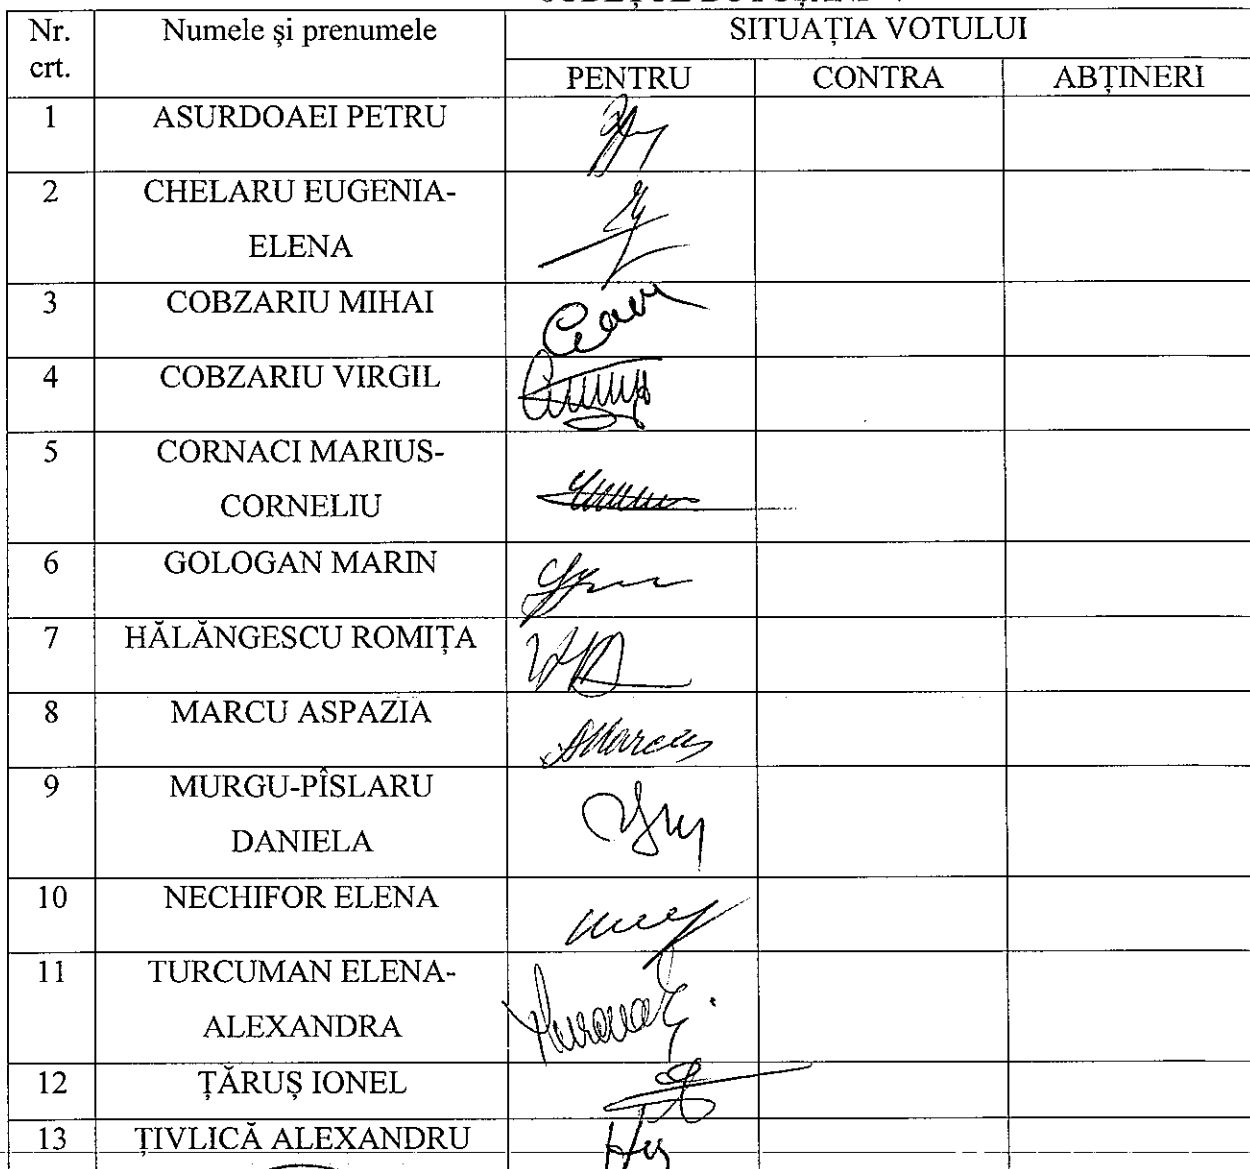 Nr. crt.
Numele și prenumele
SITUAȚIA VOTULUI
PENTRU
CONTRA
ABȚINERI
1
ASURDOAEI PETRU
2
CHELARU EUGENIA-
ELENA
3
COBZARIU MIHAI
4
COBZARIU VIRGIL
5
CORNACI MARIUS-
CORNELIU
6
GOLOGAN MARIN
7
HĂLĂNGESCU ROMIȚA
8
MARCU ASPAZIA
AMarcu
9
MURGU-PÎSLARU
DANIELA
10
NECHIFOR ELENA
11
TURCUMAN ELENA-
ALEXANDRA
12
ȚĂRUȘ IONEL
13
ȚIVLICĂ ALEXANDRU